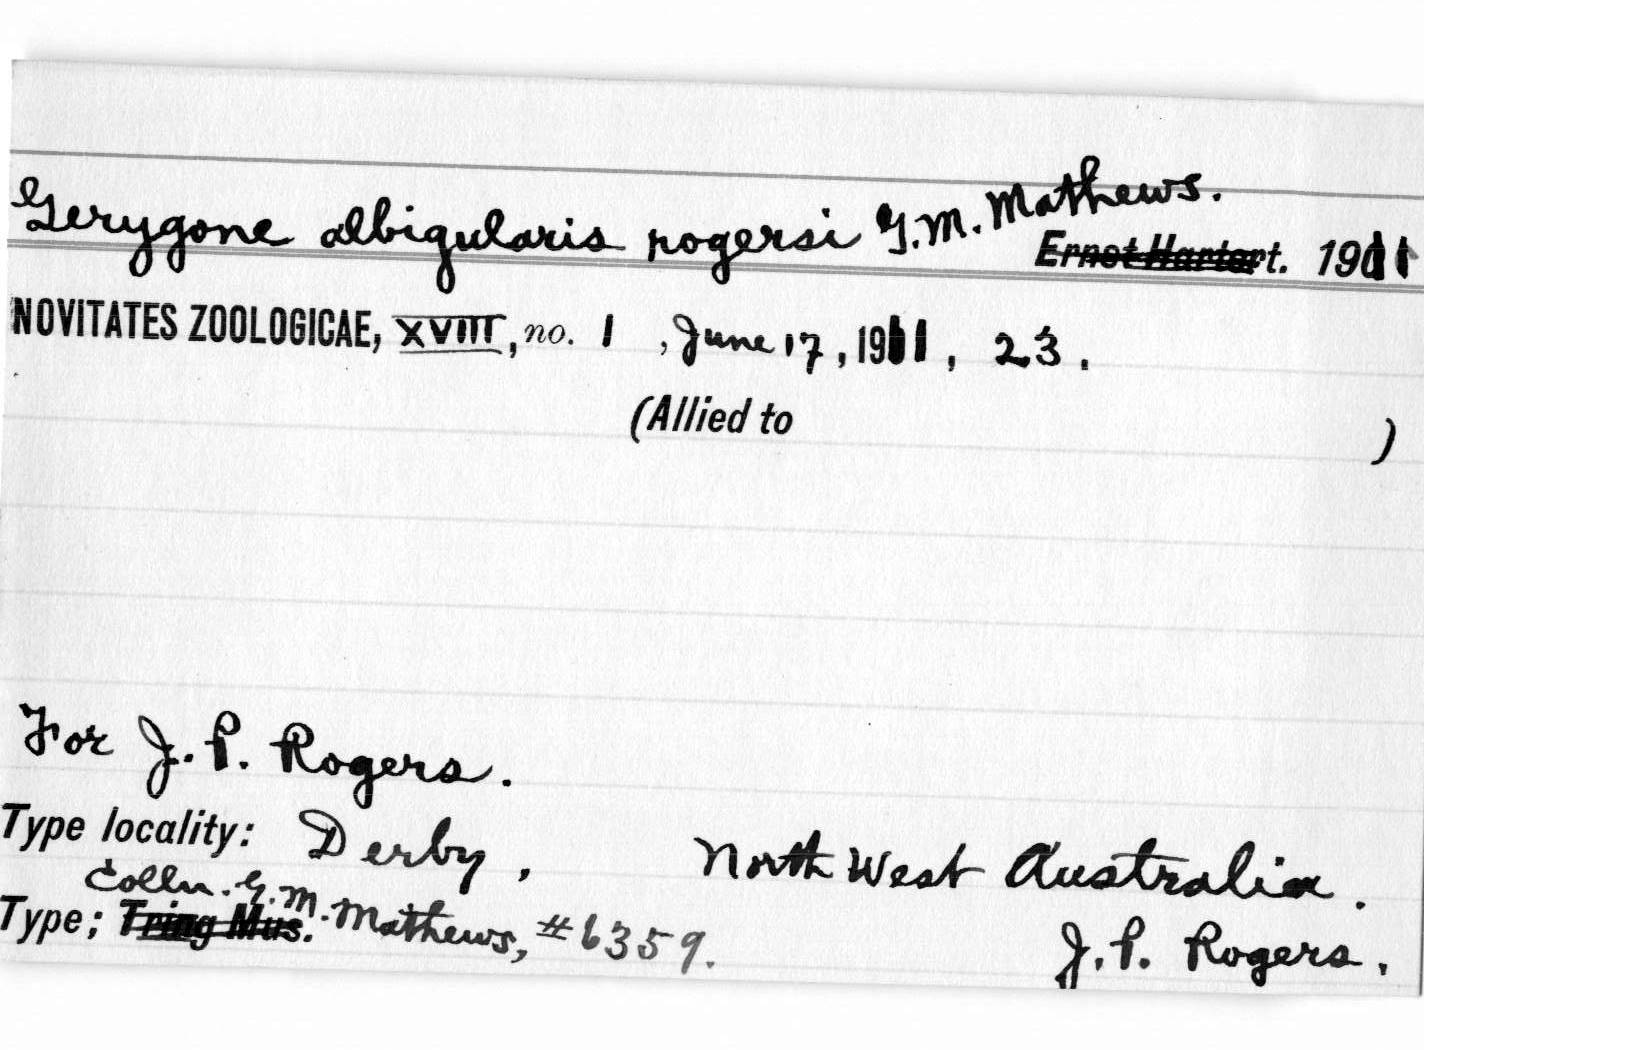 Gerygone albigularis rogersi G.M. Mathews.
Ernst Hartert. 1911
NOVITATES ZOOLOGICAE, XVIII, no. 1, June 17, 1911, 23.
(Allied to )
For J. P. Rogers.
Type locality: Derby, North West Australia.
Colln. G.M. Mathews, #6359.
Type; Tring Mus.
J. P. Rogers.